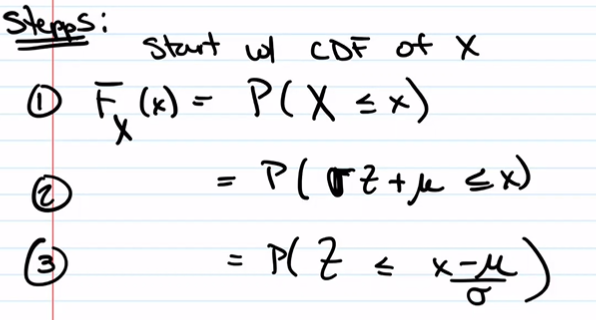 Stepps:
Start w/ CDF of X
① F_X(x) = P(X ≤ x)
② = P(σZ + μ ≤ x)
③ = P(Z ≤ (x-μ)/σ)